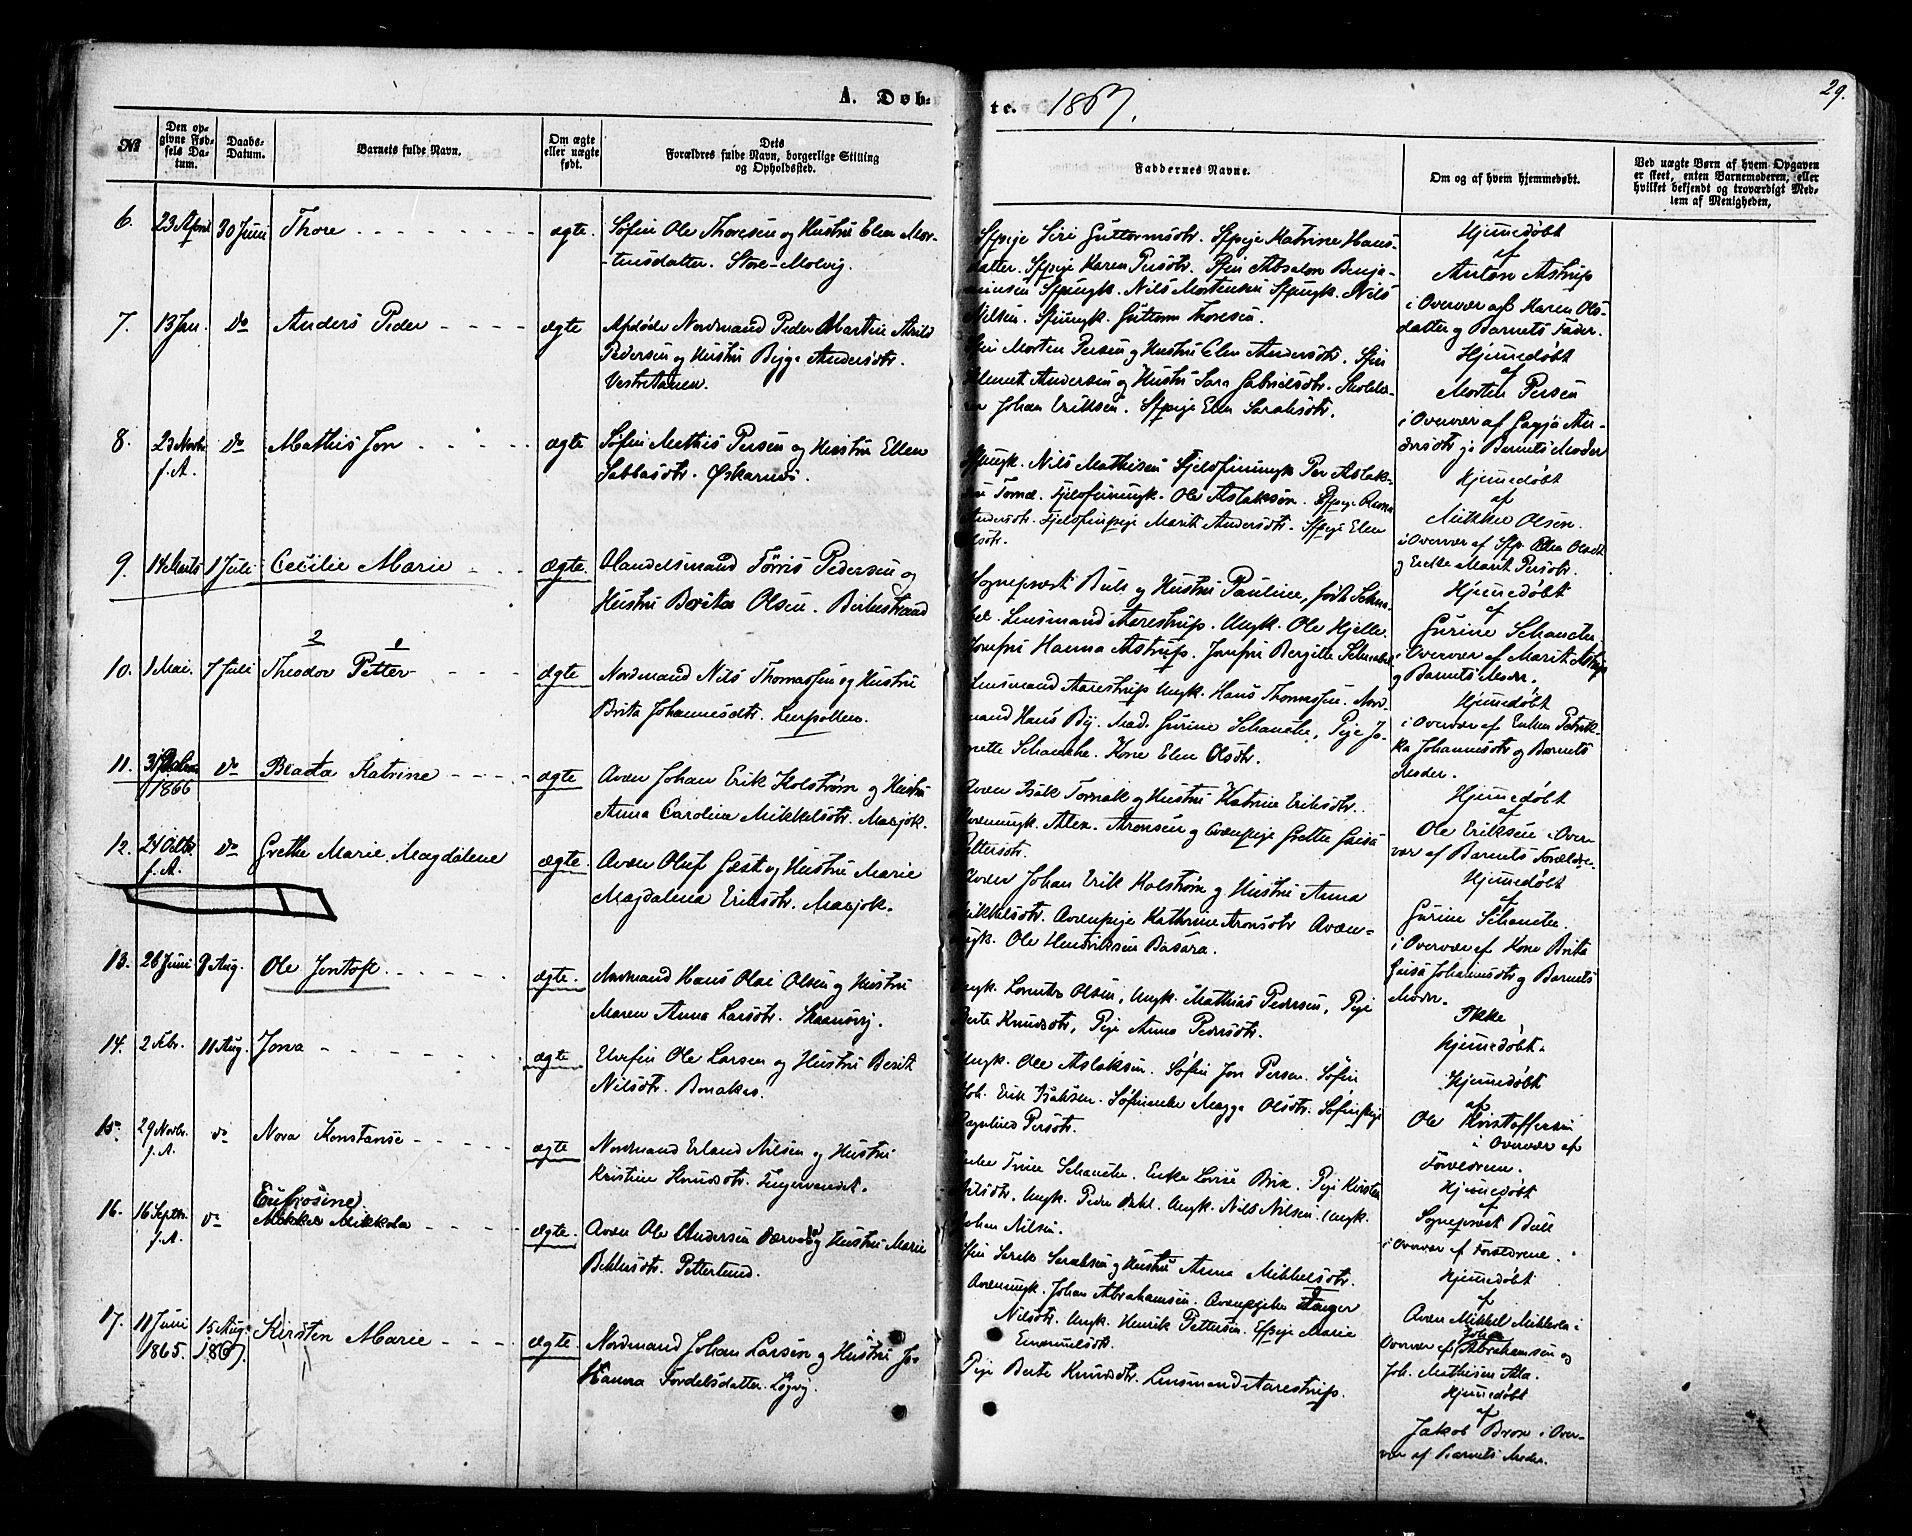 A. Døb-
te. 1867.
29.
№
Den opgivne Fødsels Datum.
Daabs-Datum.
Barnets fulde Navn.
Om ægte eller uægte født.
Dets Forældres fulde Navn, borgerlige Stilling og Opholdssted.
Faddernes Navne.
Om og af hvem hjemmedøbt.
Ved uægte Børn af hvem Opgaven er skeet, enten Barnemoderen, eller hvilket bekjendt og troværdigt Medlem af Menigheden,
6. 23 April 30 Juni Thore ægte. Søfin Ole Thoresen og Hustru Elen Mor-
tensdatter. Store-Molvig.
Sfpige Siri Guttormsdtr. Sfpige Katrine Hans-
datter. Sfpige Karen Persdtr. Sfin Absalon Benja-
minsen Sfungk. Nils Mortensen Sfungk. Nils
Nilsen. Sfinungk. Guttorm Thoresen.
Hjemedøbt
af
Anton Astrup
i Overvær af Karen Ols-
datter og Barnets Fader.
7. 13 Jan. do Anders Peder ægte Afdøde Nordmand Peder Martin Arild
Pedersen og Hustru Bigge Andersdtr.
Vestretanen.
Sfin Morten Persen og Hustru Elen Andersdtr. Sfin
Klemet Andersen og Hustru Sara Gabrielsdtr. Skolelæ-
rer Johan Eriksen. Sfpige Elen Sarahsdtr.
Hjemedøbt
af
Morten Persen
i Overvær af Gagja An-
dersdtr og Barnets Moder
8. 23 Novbr f. A. do Mathis Jon ægte Søfin Mathis Persen og Hustru Ellen
Sabbasdtr. Øskarnes.
Sfungk. Nils Mathisen Fjeldfinungk Per Aslak-
sen Tornæ. Fjeldfinungk. Ole Aslaksen. Sfpige Ravna
Andersdtr. Fjeldfinpige Marit Andersdtr. Sfpige Elen
Olsdtr.
Hjemedøbt
af
Mikkel Olsen.
i Overvær af Sfp. Elen Olsdtr
og Enke Marit Persdtr.
9. 14 Marts 1 Juli Cecilie Marie ægte. Handelsmand Tørris Pedersen og
Hustru Berita Olsen. Birkestrand
Sognepræst Bull og Hustru Pauline, Frk Schna-
bel. Lensmand Aarestrup. Ungk. Ole Kjelle.
Jomfru Hanna Astrup. Jomfru Bergitte Schnabel
Hjemedøbt
af
Gurine Schanche.
i Overvær af Marit Astrup
og Barnets Moder.
2 1
10. 1 Mai. 7 Juli Theodor Petter ægte Nordmand Nils Thomassen og Hustru
Brita Johannesdtr. Leerpollen.
Lensmand Aarestrup Ungk. Hans Thomassen. Nord-
mand Hans By. Mad. Gurine Schanche, Pige Ja-
nette Schanche. Kone Elen Olsdtr.
Hjemedøbt
i Overvær af Enken Patrik-
ka Johannesdtr og Barnets
Moder.
11. 1866 do Beata Katrine ægte Qvæn Johan Erik Kolstrøm og Hustru
Anna Carolina Mikkelsdtr. Masjok.
Qvæn Isak Tornak og Hustru Katrine Eriksdtr.
Qvænungk. Alex. Aronsen og Qvænpige Grette Gaisa
Pettersdtr.
Hjemedøbt
af
Ole Eriksen i Over-
vær af Barnets Forældre.
12. 24 Oktbr f. A. do Grethe Marie Magdalene ægte. Qvæn Oluf Gæst og Hustru Marie
Magdalena Eriksdtr. Masjok.
Qvæn Johan Erik Kolstrøm og Hustru Anna
Mikkelsdtr. Qvænpige Kathrine Aronsdtr Qvæn-
ungk. Ole Hendriksen Basara.
Hjemedøbt
af
Gurine Schanche.
i Overvær af Kone Brita
Gaisa Johannesdtr og Barnets
Moder.
13. 26 Juni 9 Aug. Ole Jentoft ægte. Nordmand Hans Olai Olsen og Hustru
Maren Anna Larsdtr. Skaansvig.
Ungk. Lorents Olsen, Ungk. Mathias Pedersen, Pige
Berte Knudsdtr, Pige Anna Pedersdtr.
Ikke
hjemedøbt.
14. 2 Febr. 11 Aug. Jova ægte Elvefin Ole Larsen og Hustru Berit
Nilsdtr. Bonakas.
Ungk. Ole Aslaksen. Søfin Jon Persen. Søfin
Joh. Erik Isaksen. Søfinenke Magga Olsdtr. Søfinpige
Ragnhild Persdtr.
Hjemedøbt
af
Ole Kristoffersen
i Overvær af
Forældrene.
15. 29 Novbr. f. A. do Nora Konstanse ægte Nordmand Erland Nilsen og Hustru
Kristine Knudsdtr. Lngervandet.
Enke Trine Schanche. Enke Lovise Brix. Pige Kirsten
Nilsdtr. Ungk. Peder Dahl. Ungk. Nils Nilsen. Ungk.
Johan Nilsen.
Hjemedøbt
af
Sognepræst Bull
i Overvær af Forældrene.
16. 16 Septbr. f. A. do Eufrosine
Mikkel Mikkola ægte. Qvæn Ole Andersen og Hustru Marie
Bekkisdtr. Pettertund.
Sfin Sarak Sarahsen og Hustru Anna Mikkelsdtr.
Qvænungk. Johan Abrahamsen. Qvænpige Inger
Nilsdtr. Ungk. Henrik Pettersen. Sfpige Marie
Emanuelsdtr.
Hjemedøbt
af
Qvæn Mikkel Mikkola i
Overvær af Johan Abrahamsen og
Joh. Mathisen Ala.
17. 11 Juni 1865. 15 Aug. 1867. Kirsten Marie ægte. Nordmand Johan Larsen og Hustru Jo-
hanna Fordelsdatter. Løgvig.
Pige Berte Knudsdtr. Lensmand Aarestrup.
Hjemedøbt
af
Jakob Brox i Over-
vær af Barnets Moder.